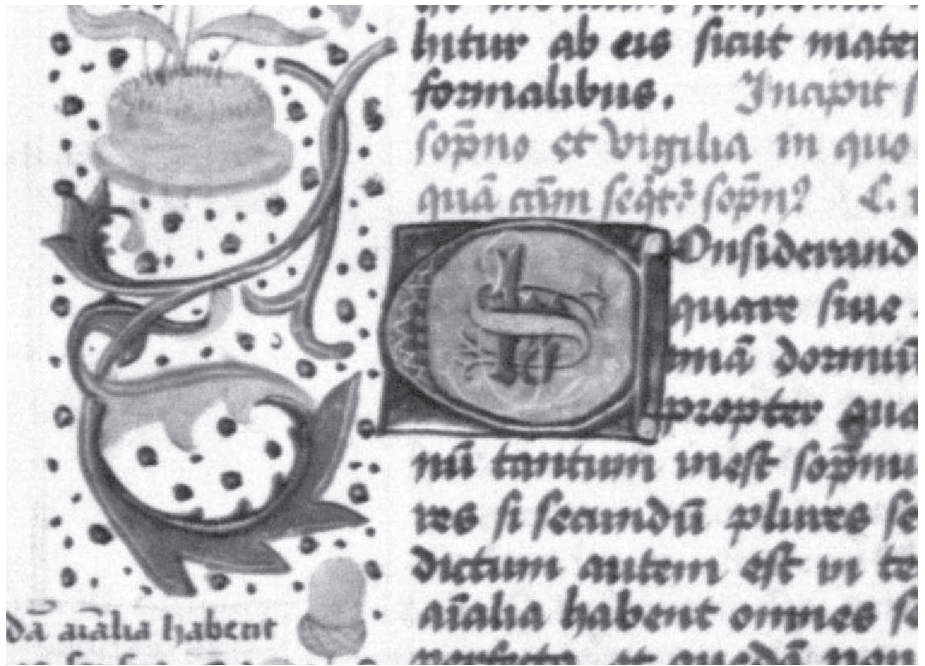 hitur ab eis sicut mate
formalibus. Incipit
sop̄no et vigilia in quo
quā cum sop̄n
Onsiderand
quare siue
mā dormiū
propter qua
nū tantum inest sop̄nu
res si secundū plures se
dictum autem est in te
dā aīalia habent
aīalia habent omnes se
perfecta et quedā non